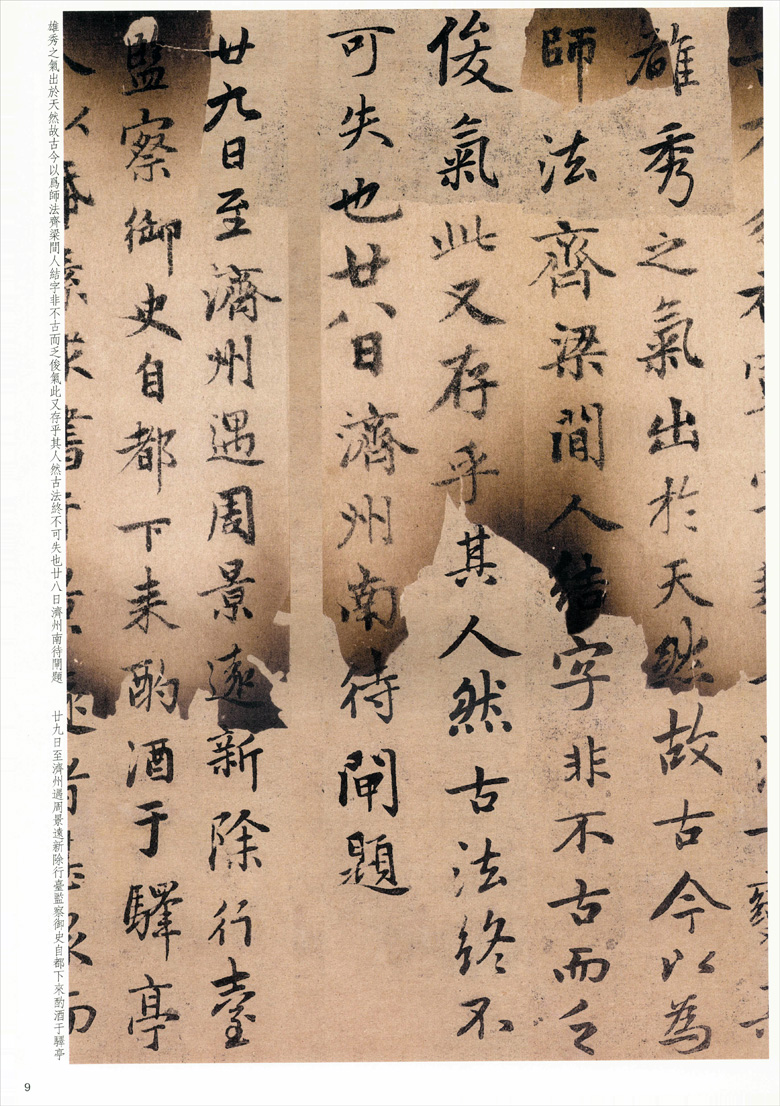 雄秀之氣出於天然故古今以為
師法齊梁間人結字非不古而乏
俊氣此又存乎其人然古法終不
可失也廿八日濟州南待閘題
廿九日至濟州遇周景遠新除行臺
監察御史自都下来酌酒于驛亭
雄秀之氣出於天然故古今以爲師法齊梁間人結字非不古而乏俊氣此又存乎其人然古法終不可失也廿八日濟州南待閘題　廿九日至濟州遇周景遠新除行臺監察御史自都下來酌酒于驛亭
9